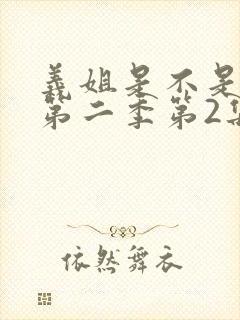 義姐是不是
第二季第2集
依然舞衣